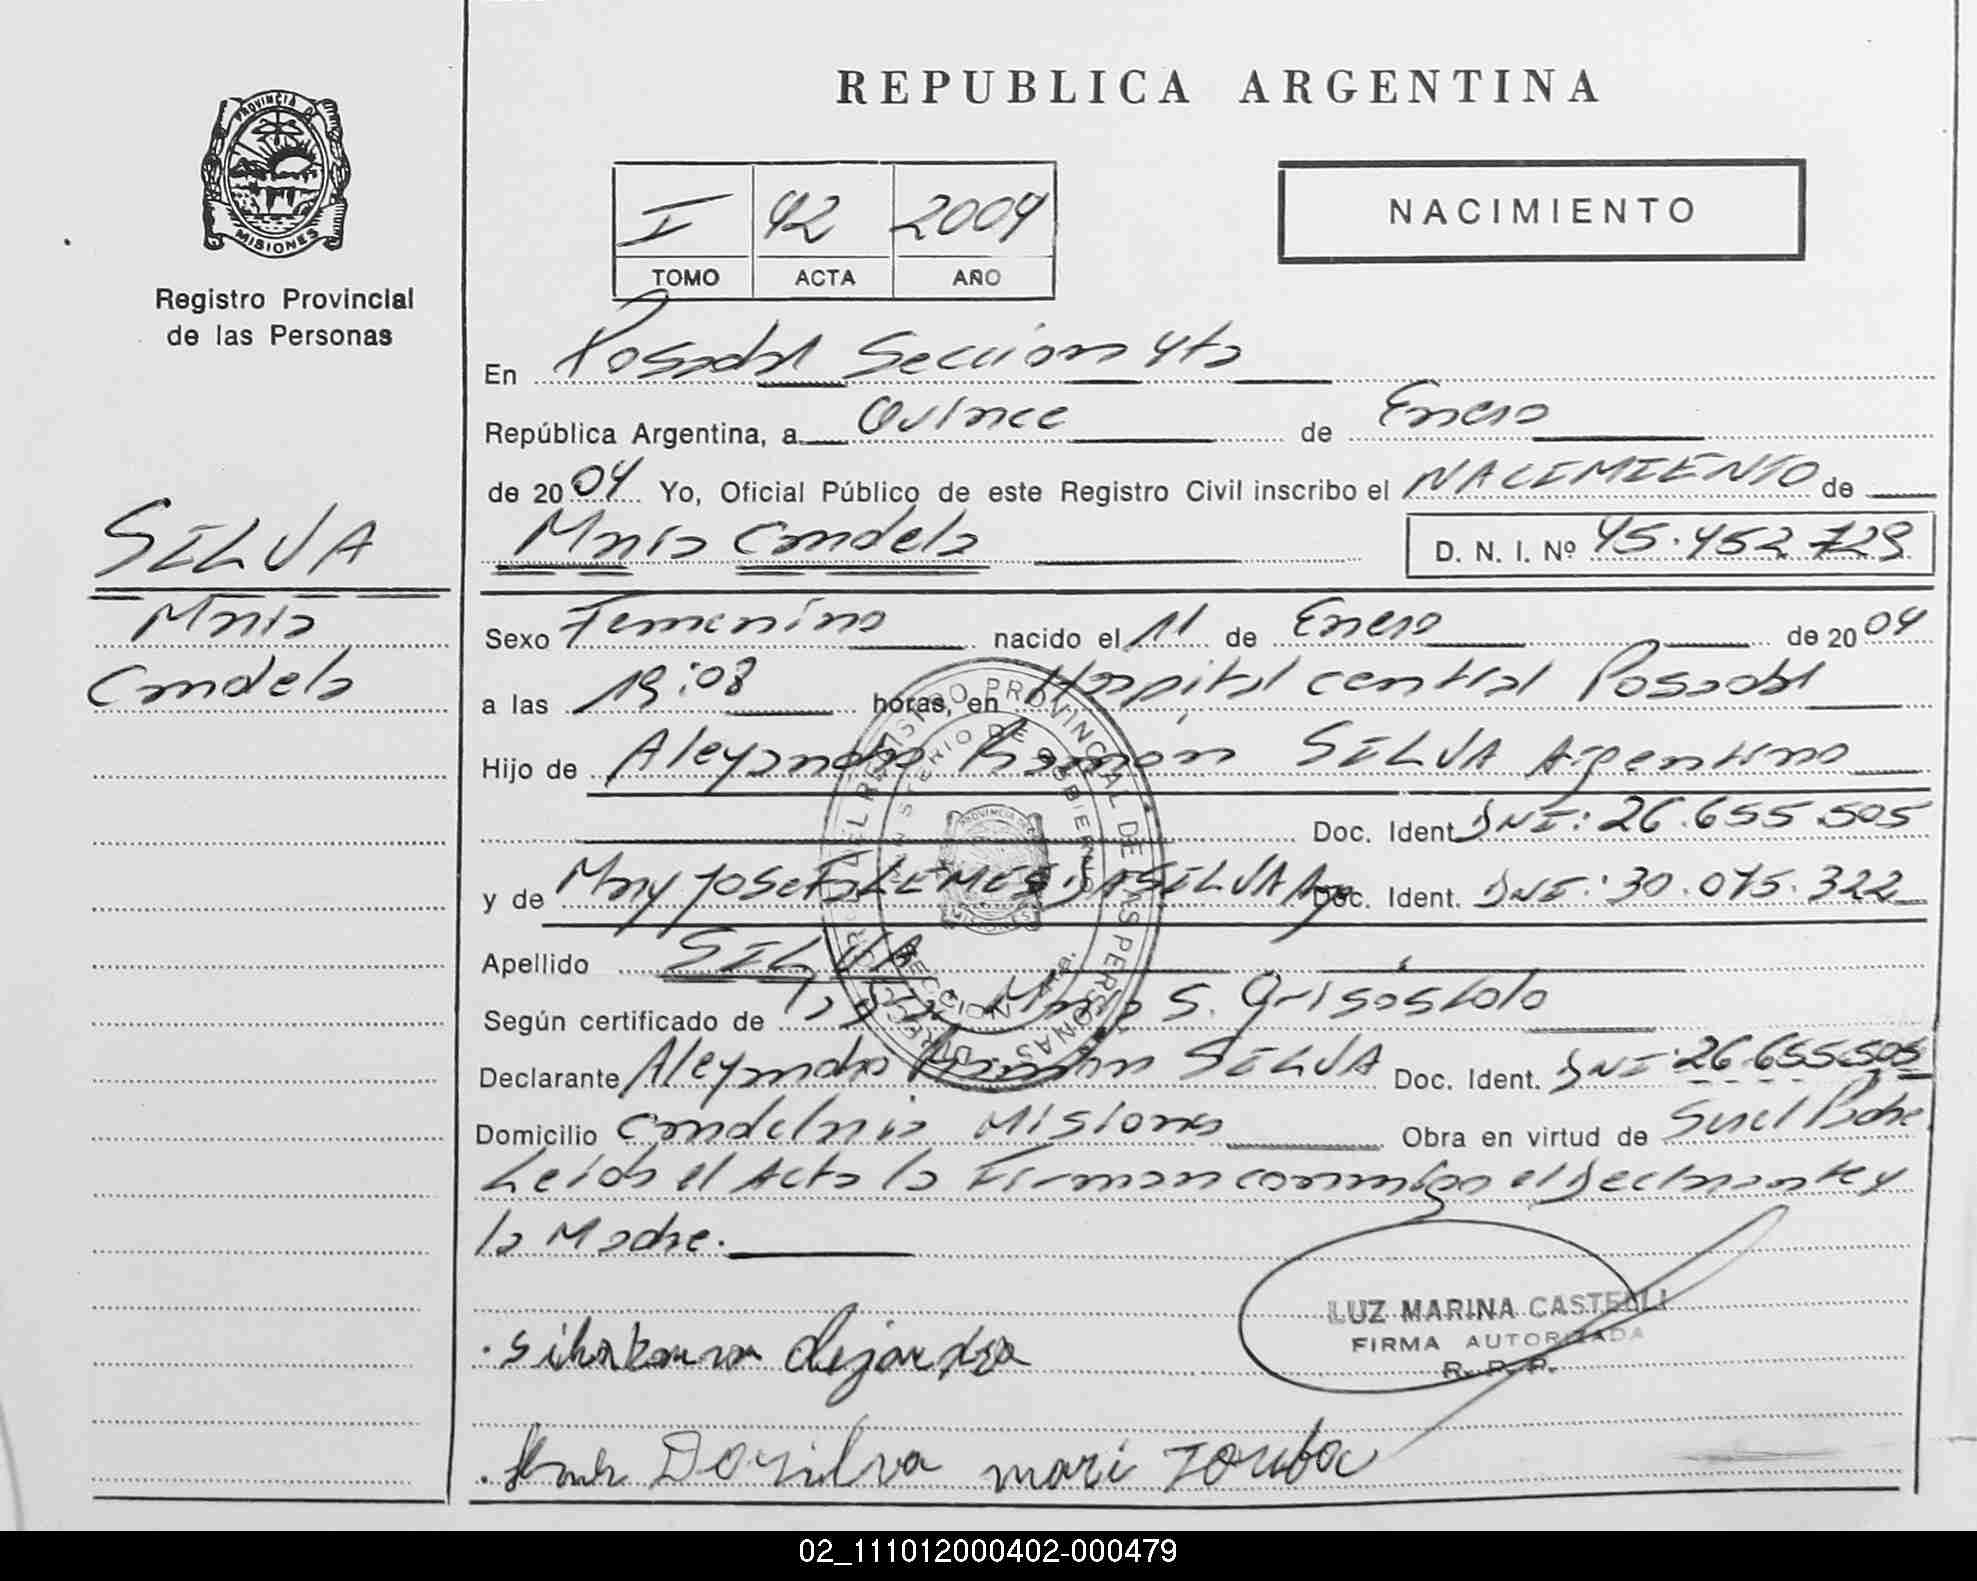 REPUBLICA ARGENTINA
PROVINCIA DE
MISIONES
Registro Provincial
de las Personas
I 42 2004
TOMO ACTA AÑO
NACIMIENTO
En Posadas Seccion 4ta
República Argentina, a Quince de Enero
de 2004 Yo, Oficial Público de este Registro Civil inscribo el NACIMIENTO de
Maria Candela D. N. I. Nº 45.452.729
SILVA
Maria
Candela
Sexo Femenino nacido el 11 de Enero de 2004
a las 19:08 horas, en Hospital central Posadas
Hijo de Alejandro Ramón SILVA Argentino
Doc. Ident. DNI: 26.655.505
y de Mary Josefa LEMES DA SILVA Arg Doc. Ident. DNI: 30.075.322
Apellido SILVA
Según certificado de la S. Grisóstolo
Declarante Alejandro Ramón SILVA Doc. Ident. DNI: 26.655.505
Domicilio Candelaria Misiones Obra en virtud de Ser el Padre
Leida el Acta la Firman conmigo el Declarante y
la Madre.
LUZ MARINA CASTELLI
FIRMA AUTORIZADA
R. P. P.
Silva Alejandro
Da Silva mari
REGISTRO PROVINCIAL DE LAS PERSONAS
MINISTERIO DE GOBIERNO
02_111012000402-000479